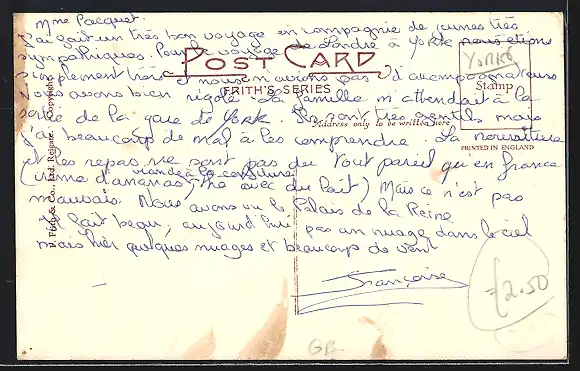 Mme Pacquet.
J'ai fait un très bon voyage en compagnie de jeunes très
sympathiques. Pour le voyage de Londre à York nous étions
simplement trois et nous n'avions pas d'accompagnateurs
Nous avons bien rigolé. La famille m'attendait à la
sortie de la gare de York. Ils sont très gentils mais
j'ai beaucoup de mal à les comprendre. La nourriture
et les repas ne sont pas du tout pareil qu'en france
viande à la confiture
(crème d'ananas, thé avec du lait) Mais ce n'est pas
mauvais. Nous avons vu le Palais de la Reine
Il fait beau, aujourd'hui pas un nuage dans le ciel
mais hier quelques nuages et beaucoup de vent
Françoise
POST CARD
FRITH'S SERIES
Address only to be written here
York
Stamp
PRINTED IN ENGLAND
F. Frith & Co., Ltd. Reigate. Copyright.
£2.50
GB